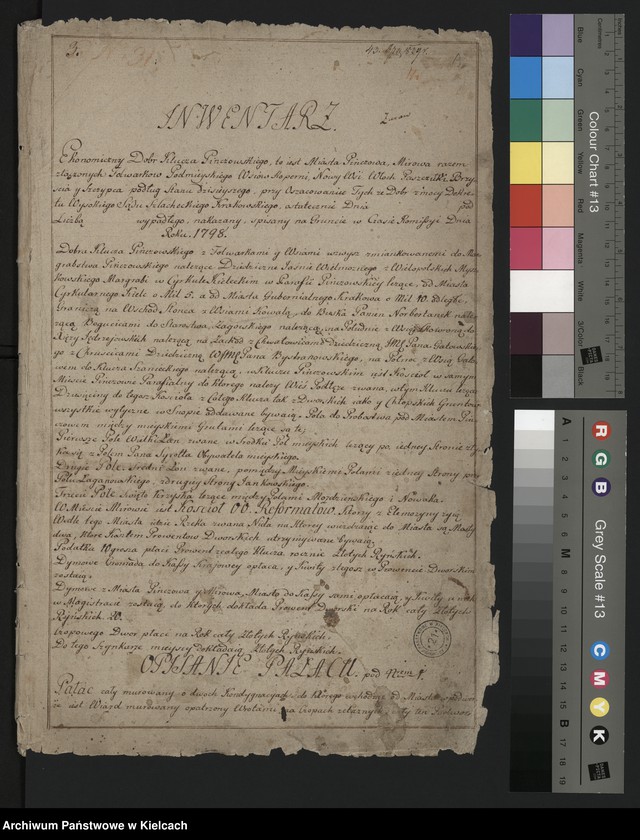 3.
INWENTARZ.
Ekonomiczny Dobr Klucza Pinczowskiego, to iest Miasta Pinczowa, Mirowa razem
złączonych Folwarkow Podmieyskiego Wsiow Koperni, Nowy Wsi Włoch Pasturki, Brze
ścia y Skrzypca podług Stanu Dzisieyszego, przy Oszacowaniu Tych ze Dobr z mocy Dekre
tu Wysokiego Sądu Szlacheckiego Krakowskiego, ostatecznie Dnia pod
Liczbą wypadłego, nakazany, spisany na Gruncie w Czasie Komissyi Dnia
Roku 1798.
Dobra Klucza Pinczowskiego z Folwarkami y Wsiami wzwysz zmiankowanemi do Mar
grabstwa Pinczowskiego należące Dziedziczne Jaśnie Wielmożnego z Wielopolskich Mysz
kowskiego Margrabi w Cyrkule Kieleckim w Parafii Pinczowskiey leżące, od Miasta
Cyrkularnego Kielc o Mil 5. a od Miasta Gubernialnego Krakowa o Mil 10. odległe.
Graniczą na Wschod Słonca z Wsiami Kowalą, do Buska Panien Norbertanek nale
żącą, Bogucicami do Starostwa należącą, na Południe z
Xięży Jędrzejowskich należącą na Zachod z Chwałowicami Dziedziczną JMC Pana
go z Chruscicami Dziedziczną WJMC Pana Bystranowskiego, na Połnoc z Wsią
wem do Klucza należącą, w Kluczu Pinczowskim iest Kościoł w samym
Mieście Pinczowie Parafialny do ktorego należy Wieś zwana, w tym Kluczu leżąca
Dziesięciny do tegoż Kościoła z Całego Klucza tak z Dworskich iako y Chłopskich Gruntow
wszystkie wytyczne w Snopie oddawane bywaią. Pola do Probostwa pod Miastem Pin
czowem między mieyskiemi Gruntami leżące są te,
Pierwsze Pole Wielki Łan zwane w środku Pol mieyskich leżący po iedney Stronie
z Polem Pana Obywatela mieyskiego.
Drugie Pole Średni Łan zwane, pomiędzy Mieyskiemi Polami z iedney Strony przy
Polu Łaganowskiego, z drugiey Strony Jankowskiego.
Trzecie Pole Święto Krzyska leżące między Polami y Nowaka.
W Mieście Mirowie iest Kościoł OO. Reformatow, ktorzy z Elemozyny żyią
Wedle tego Miasta idzie Rzeka zwana Nida na ktorey wieżdżaiąc do Miasta są Mosty
dwa, ktore Kosztem Prowentow Dworskich utrzymywane bywaią.
Podatku 10grosza płaci Prowent z całego Klucza rocznie Złotych Ryńskich.
Dymowe Gromada do Kassy Kraiowey opłaca, y Kwity z tegoż w Prowencie Dworskim
zostaią.
Dymowe z Miasta Pinczowa y Mirowa, Miasto do Kassy sami opłacaią, y Kwity u nich
w Magistracie zostaią, do ktorych dokłada Prowent Dworski na Rok cały Złotych
Ryńskich. 20.
Czopowego Dwor płaci na Rok cały Złotych Ryńskich.
Do tego Szynkarze mieyscy dokładaią Złotych Ryńskich.
OPISANIE PAŁACU. pod Num 1.
Pałac cały murowany o dwoch Kondygnacyach, do ktorego wchodząc od Miasta
że iest Wiazd murowany opatrzony Wrotami na czopach żelaznych
Archiwum Państwowe w Kielcach
Colour Chart #13
Blue
Cyan
Green
Yellow
Red
Magenta
White
3/Color
Black
Centimetres
Inches
Grey Scale #13
R
G
B
C
M
Y
K
A 1 2 3 4 5 6 M 8 9 10 11 12 13 14 15 B 17 18 19